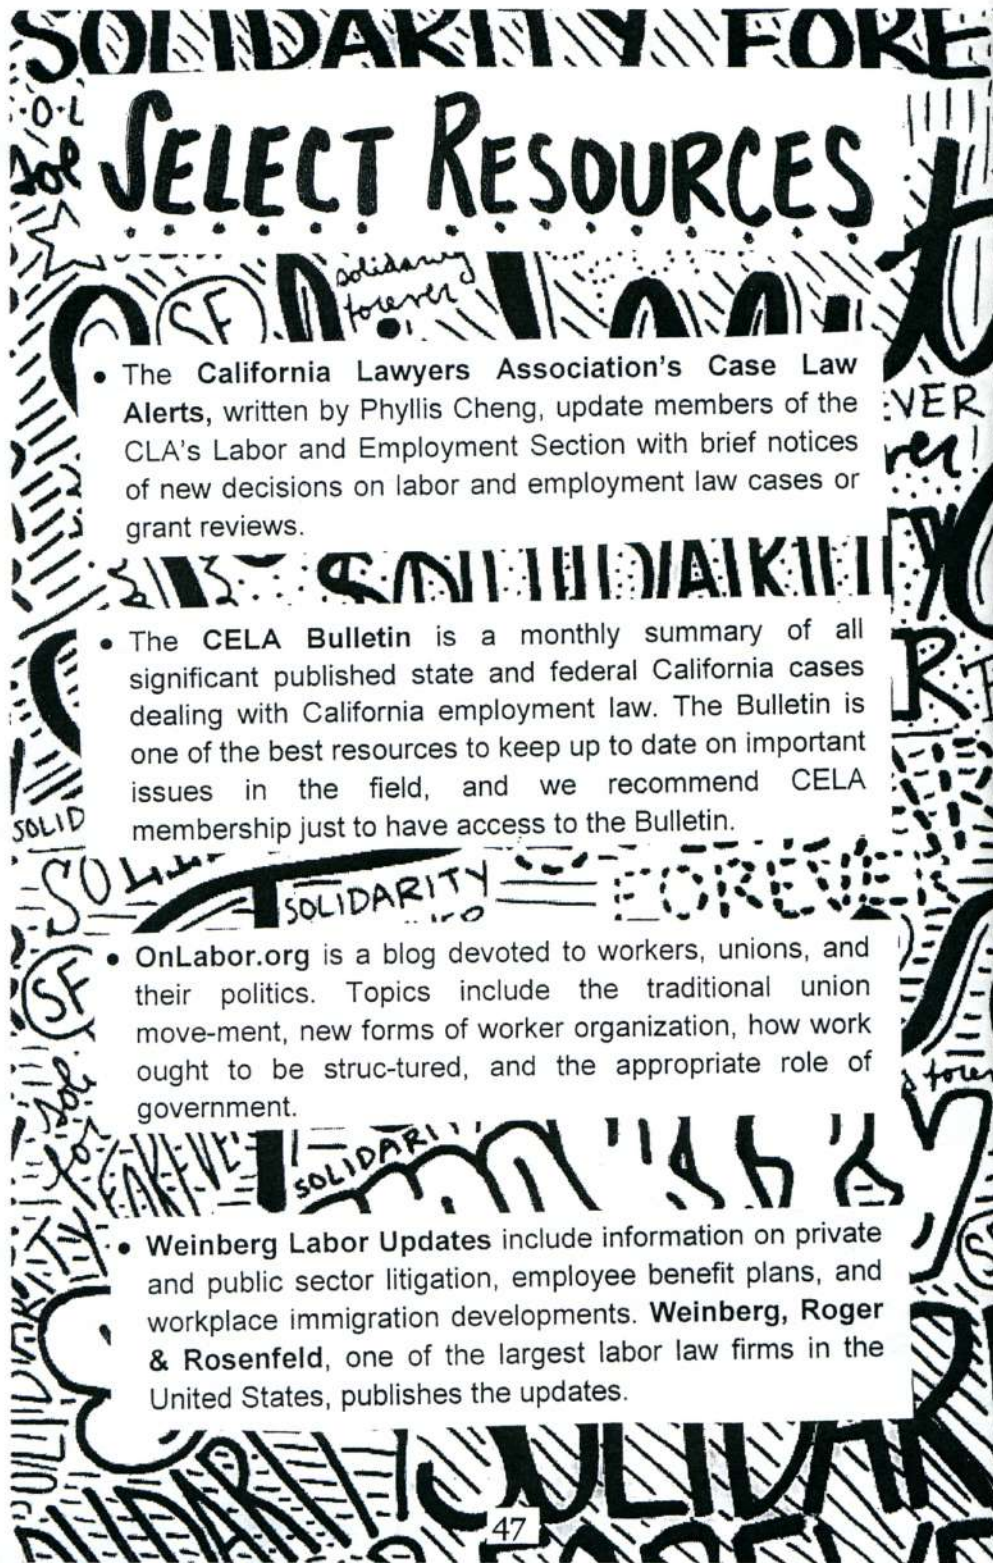 SOLIDARITY FORE
SELECT RESOURCES
SF
solidarity
forever
• The California Lawyers Association's Case Law
Alerts, written by Phyllis Cheng, update members of the
CLA's Labor and Employment Section with brief notices
of new decisions on labor and employment law cases or
grant reviews.
VER
• The CELA Bulletin is a monthly summary of all
significant published state and federal California cases
dealing with California employment law. The Bulletin is
one of the best resources to keep up to date on important
issues in the field, and we recommend CELA
membership just to have access to the Bulletin.
SOLID
SOLIDARITY
FOREVER
SF
• OnLabor.org is a blog devoted to workers, unions, and
their politics. Topics include the traditional union
move-ment, new forms of worker organization, how work
ought to be struc-tured, and the appropriate role of
government.
SOLIDARI
• Weinberg Labor Updates include information on private
and public sector litigation, employee benefit plans, and
workplace immigration developments. Weinberg, Roger
& Rosenfeld, one of the largest labor law firms in the
United States, publishes the updates.
SOLIDAR
47